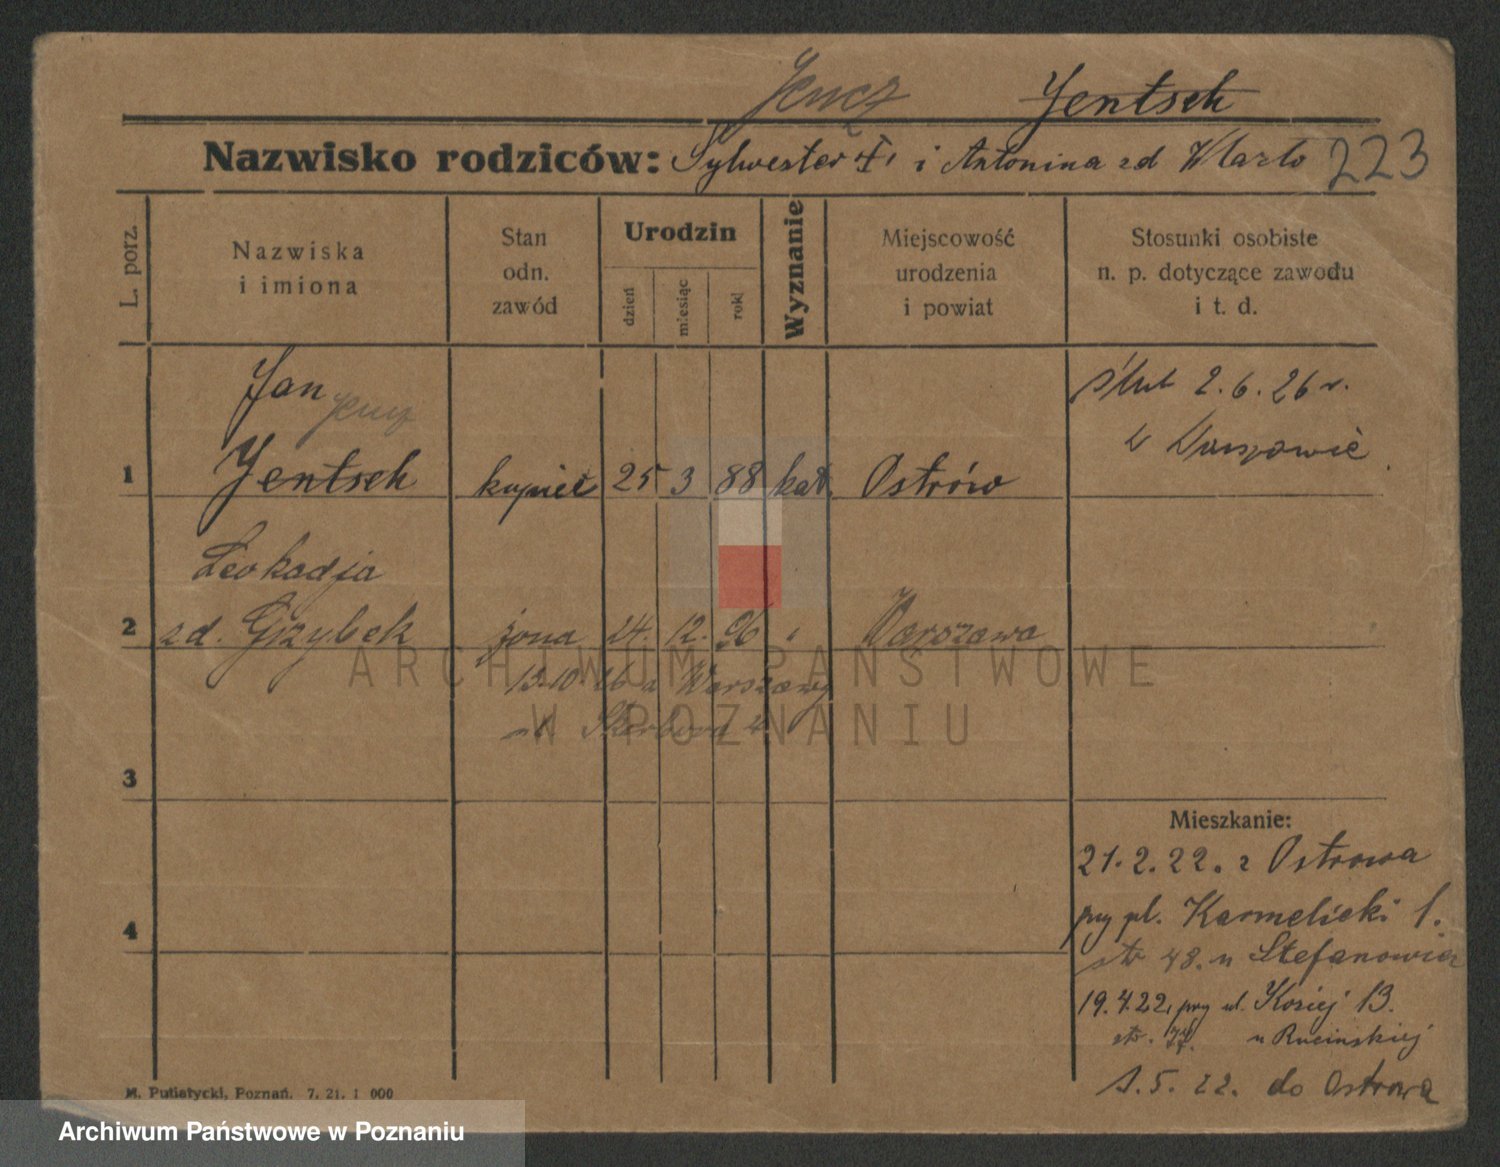 Jencz Jentsch
Nazwisko rodziców: Sylwester i Antonina zd 223
L. porz.
Nazwiska
i imiona
Stan
odn.
zawód
Urodzin
dzień
miesiąc
rok
Wyznanie
Miejscowość
urodzenia
i powiat
Stosunki osobiste
n. p. dotyczące zawodu
i t. d.
Jan
ślub 2.6.26 r.
w Warszawie
1 Jentsch kupiec 25 3 88 kat. Ostrów
Leokadja
2 zd. Grzybek żona 24. 12. 96 " Warszawa
13.10.26 z Warszawy
3
Mieszkanie:
21.2.22. z Ostrowa
przy pl. Karmelicki 1.
4
str 48. u Stefanowicz
19.4.22, przy ul. Koziej 13.
str. u Rucinskiej
1.5.22. do Ostrowa
M. Putiatycki, Poznań. 7. 21. 1 000
ARCHIWUM PAŃSTWOWE
W POZNANIU
Archiwum Państwowe w Poznaniu